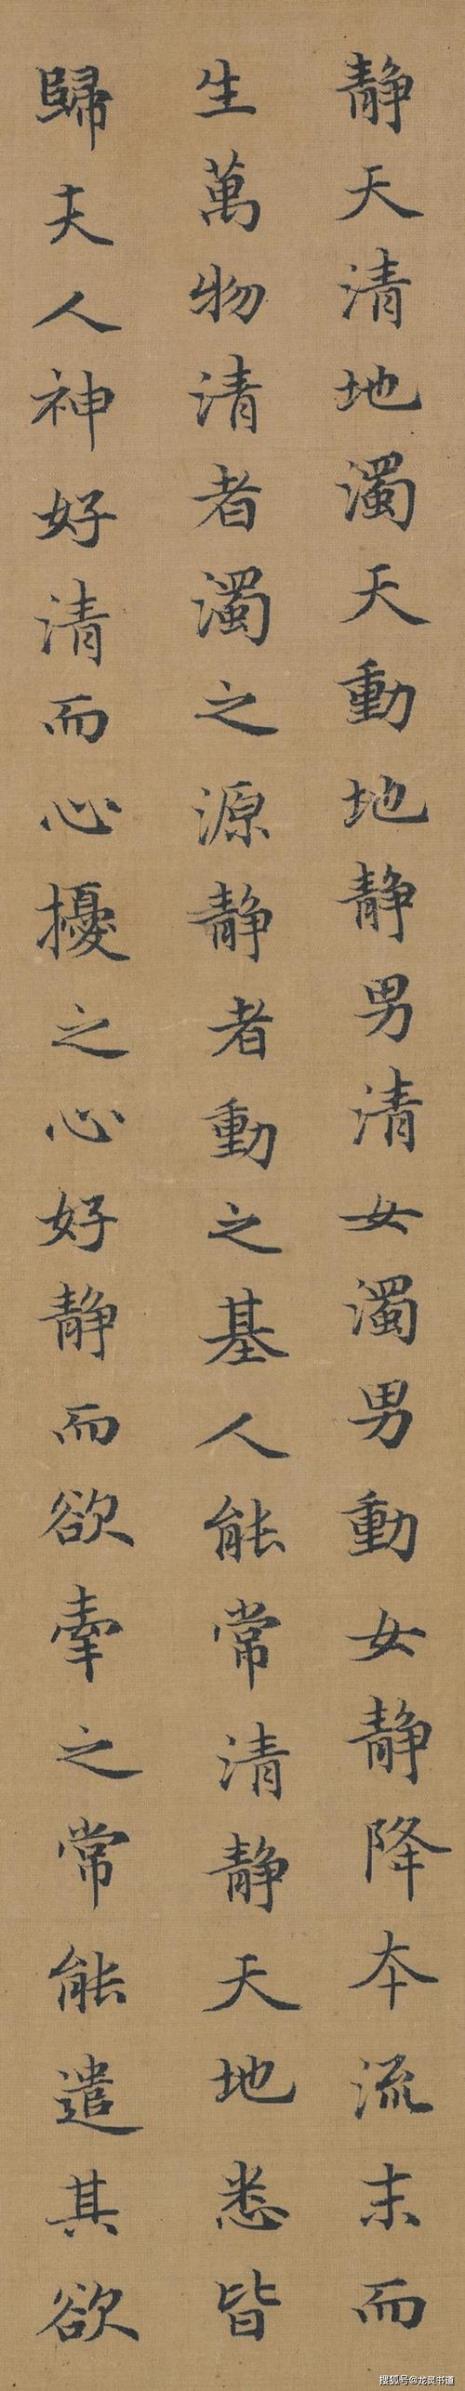 静天清地濁天動地静男清女濁男動女静降本流末而
生萬物清者濁之源静者動之基人能常清静天地悉皆
歸夫人神好清而心擾之心好静而欲牽之常能遣其欲
搜狐号@龙良书道